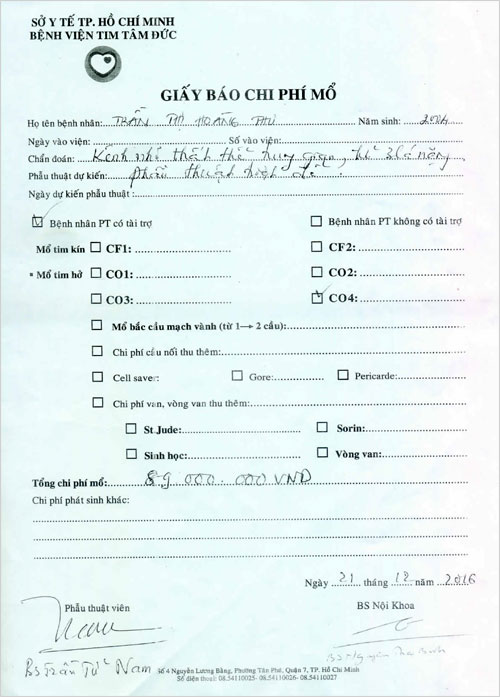 SỞ Y TẾ TP. HỒ CHÍ MINH
BỆNH VIỆN TIM TÂM ĐỨC
GIẤY BÁO CHI PHÍ MỔ
Họ tên bệnh nhân: TRẦN THỊ HOÀNG THƯ Năm sinh: 2014
Ngày vào viện: Số vào viện:
Chẩn đoán: Kênh nhĩ thất thể trung gian, hở 2 lá nặng
Phẫu thuật dự kiến: phẫu thuật triệt để
Ngày dự kiến phẫu thuật:
Bệnh nhân PT có tài trợ Bệnh nhân PT không có tài trợ
Mổ tim kín CF1: CF2:
Mổ tim hở CO1: CO2:
CO3: CO4:
Mổ bắc cầu mạch vành (từ 1→ 2 cầu):
Chi phí cầu nối thu thêm:
Cell saver: Gore: Pericarde:
Chi phí van, vòng van thu thêm:
St Jude: Sorin:
Sinh học: Vòng van:
Tổng chi phí mổ: 89.000.000 VND
Chi phí phát sinh khác:
Ngày 21 tháng 12 năm 2016
Phẫu thuật viên BS Nội Khoa
BS Trần Tử Nam
Số 4 Nguyễn Lương Bằng, Phường Tân Phú, Quận 7, TP. Hồ Chí Minh
Số điện thoại: 08.54110025- 08.54110026- 08.54110027